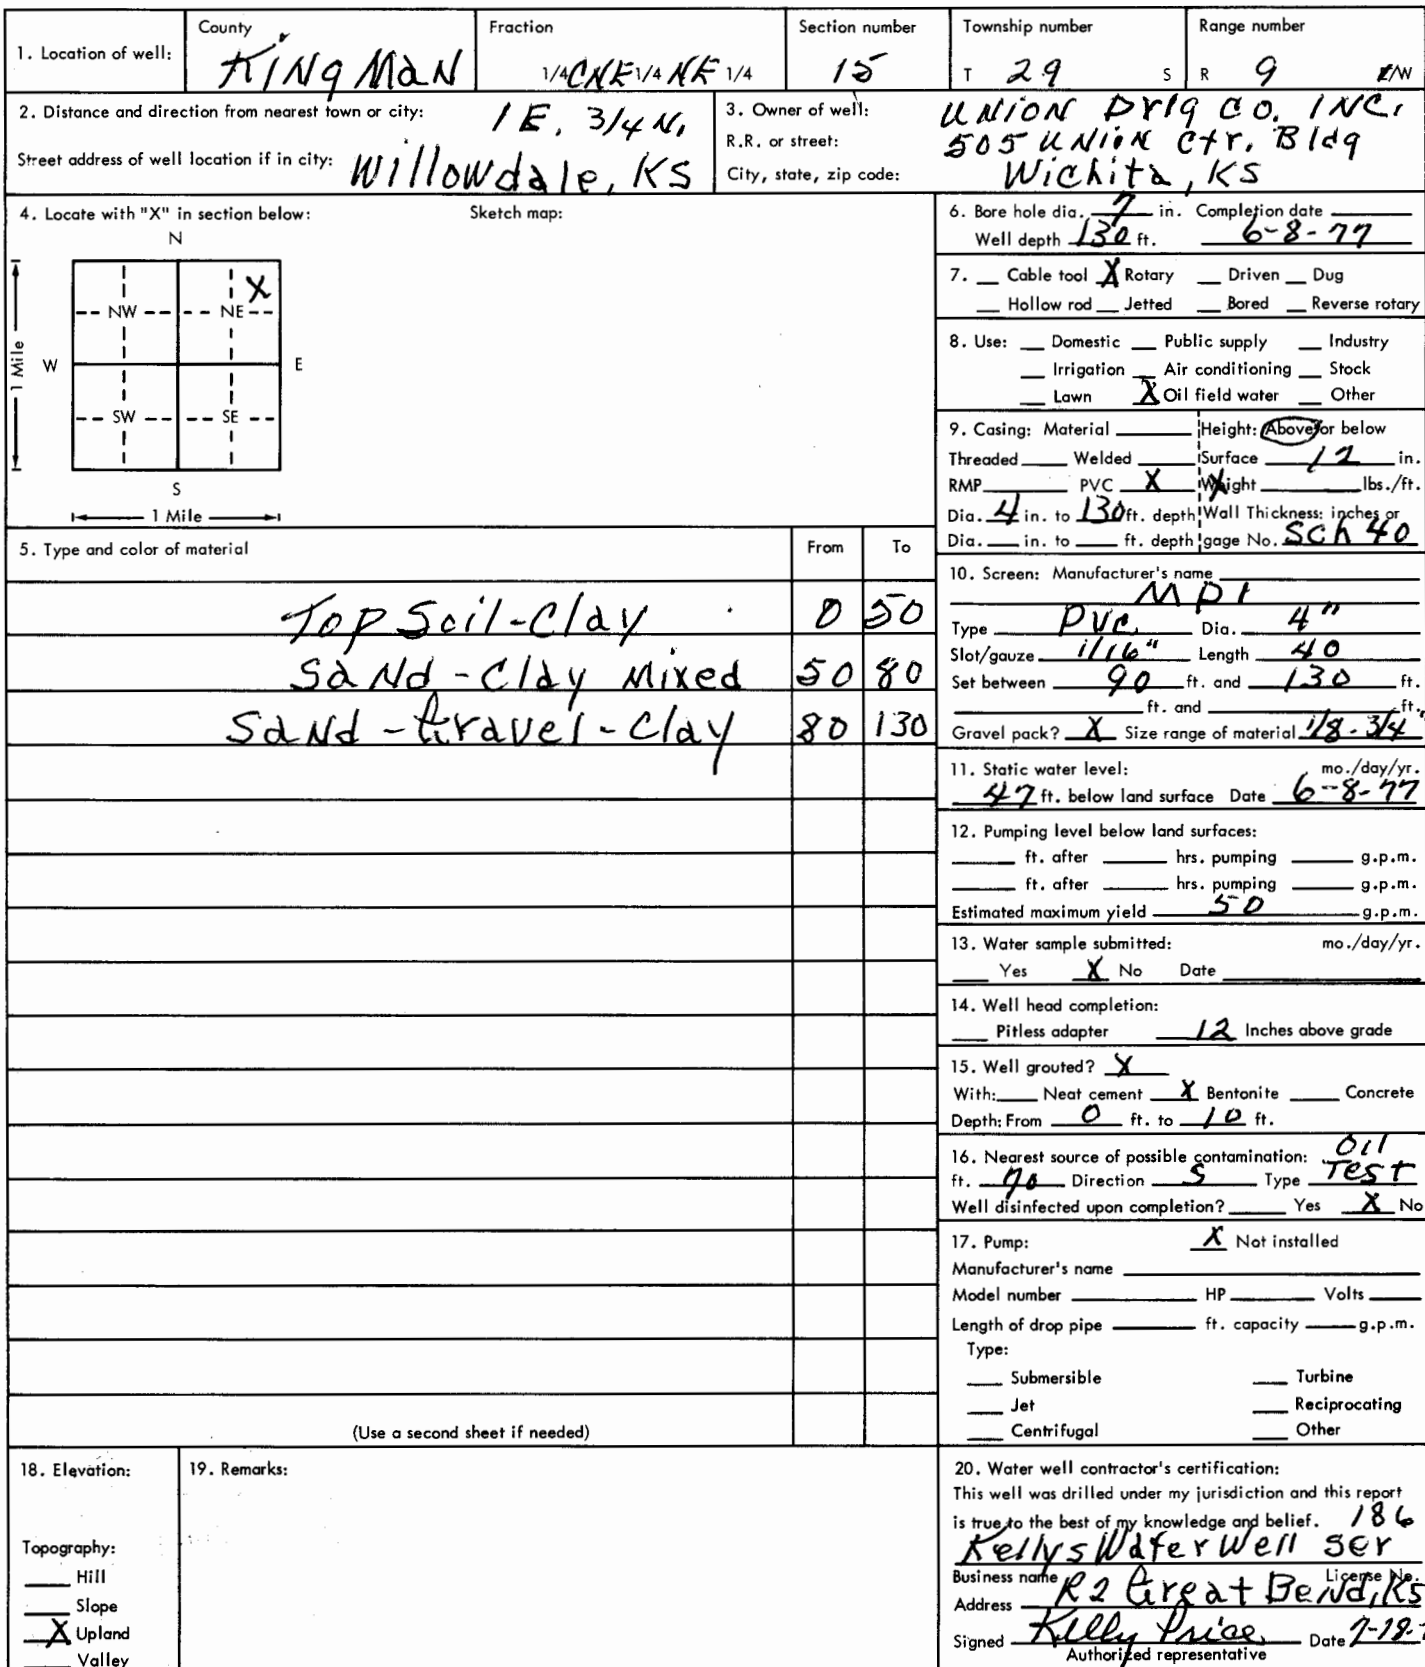 1. Location of well: County Kingman Fraction 1/4 CNE 1/4 NE 1/4 Section number 15 Township number T 29 S Range number R 9 E/W
2. Distance and direction from nearest town or city: 1 E, 3/4 N,
Street address of well location if in city: Willowdale, KS
3. Owner of well: Union Drlg Co. Inc.
R.R. or street: 505 Union Ctr. Bldg
City, state, zip code: Wichita, KS
4. Locate with "X" in section below: Sketch map:
N
X
NW NE
W E
1 Mile
SW SE
S
1 Mile
5. Type and color of material From To
Top Soil-Clay 0 50
Sand-Clay Mixed 50 80
Sand-Gravel-Clay 80 130
(Use a second sheet if needed)
6. Bore hole dia. 7 in. Completion date
Well depth 130 ft. 6-8-77
7. Cable tool X Rotary Driven Dug
Hollow rod Jetted Bored Reverse rotary
8. Use: Domestic Public supply Industry
Irrigation Air conditioning Stock
Lawn X Oil field water Other
9. Casing: Material Height: Above or below
Threaded Welded Surface 12 in.
RMP PVC X Weight lbs./ft.
Dia. 4 in. to 130 ft. depth Wall Thickness: inches or
Dia. in. to ft. depth gage No. Sch 40
10. Screen: Manufacturer's name
MDI
Type PVC Dia. 4"
Slot/gauze 1/16" Length 40
Set between 90 ft. and 130 ft.
ft. and ft.
Gravel pack? X Size range of material 1/8-3/4
11. Static water level: mo./day/yr.
47 ft. below land surface Date 6-8-77
12. Pumping level below land surfaces:
ft. after hrs. pumping g.p.m.
ft. after hrs. pumping g.p.m.
Estimated maximum yield 50 g.p.m.
13. Water sample submitted: mo./day/yr.
Yes X No Date
14. Well head completion:
Pitless adapter 12 Inches above grade
15. Well grouted? X
With: Neat cement X Bentonite Concrete
Depth: From 0 ft. to 10 ft.
16. Nearest source of possible contamination: Oil
ft. 70 Direction S Type Test
Well disinfected upon completion? Yes X No
17. Pump: X Not installed
Manufacturer's name
Model number HP Volts
Length of drop pipe ft. capacity g.p.m.
Type:
Submersible Turbine
Jet Reciprocating
Centrifugal Other
18. Elevation:
Topography:
Hill
Slope
X Upland
Valley
19. Remarks:
20. Water well contractor's certification:
This well was drilled under my jurisdiction and this report
is true to the best of my knowledge and belief. 186
Kellys Water Well Ser
Business name License No.
Address R2 Great Bend, Ks
Signed Kelly Price Date 7-18-
Authorized representative